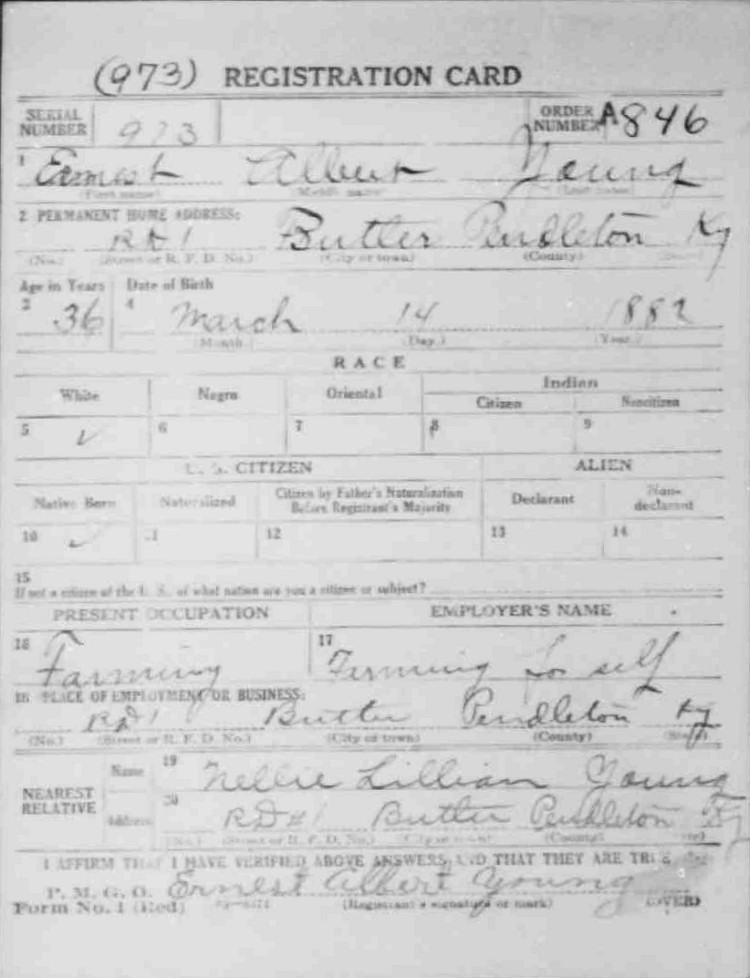 (973) REGISTRATION CARD
SERIAL NUMBER 973 ORDER NUMBER A846
1 Ernest Albert Young
(First name) (Middle name) (Last name)
2 PERMANENT HOME ADDRESS:
RD 1 Butler Pendleton Ky
(No.) (Street or R. F. D. No.) (City or town) (County) (State)
Age in Years Date of Birth
3 36 4 March 14 1882
(Month.) (Day.) (Year.)
RACE
White Negro Oriental Indian
Citizen Noncitizen
5 ✓ 6 7 8 9
U. S. CITIZEN ALIEN
Native Born Naturalized Citizen by Father's Naturalization Before Registrant's Majority Declarant Non-declarant
10 ✓ 11 12 13 14
15
If not a citizen of the U. S., of what nation are you a citizen or subject?
PRESENT OCCUPATION EMPLOYER'S NAME
16 Farming 17 Farming for self
18 PLACE OF EMPLOYMENT OR BUSINESS:
RD 1 Butler Pendleton Ky
(No.) (Street or R. F. D. No.) (City or town) (County) (State)
NEAREST RELATIVE Name 19 Nellie Lillian Young
Address 20 RD#1 Butler Pendleton Ky
(No.) (Street or R. F. D. No.) (City or town) (County)
I AFFIRM THAT I HAVE VERIFIED ABOVE ANSWERS AND THAT THEY ARE TRUE
P. M. G. O. Ernest Albert Young
Form No. 1 (Red) (Registrant's signature or mark) (OVER)